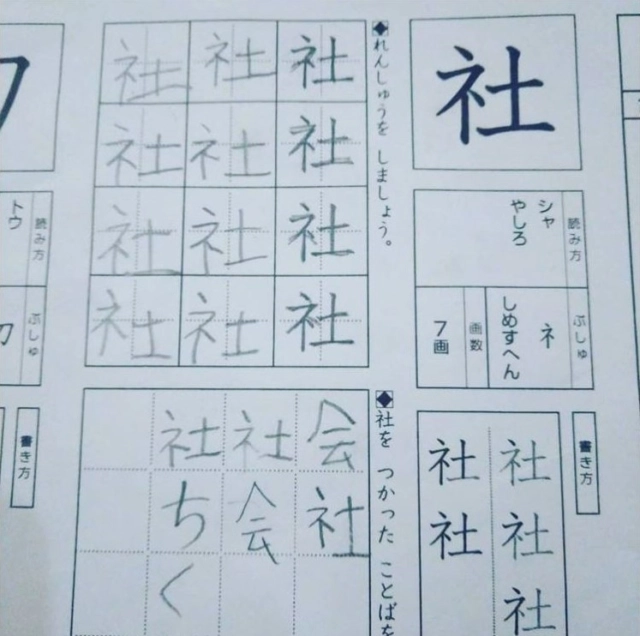 社
読み方
シャ
やしろ
ぶしゅ
ネ
しめすへん
画数
7画
書き方
社社社
社社
◆れんしゅうを しましょう。
社社社社
社社社社
社社社社
◆社を つかった ことばを
会社
社会
社ちく
読み方
トウ
ぶしゅ
書き方